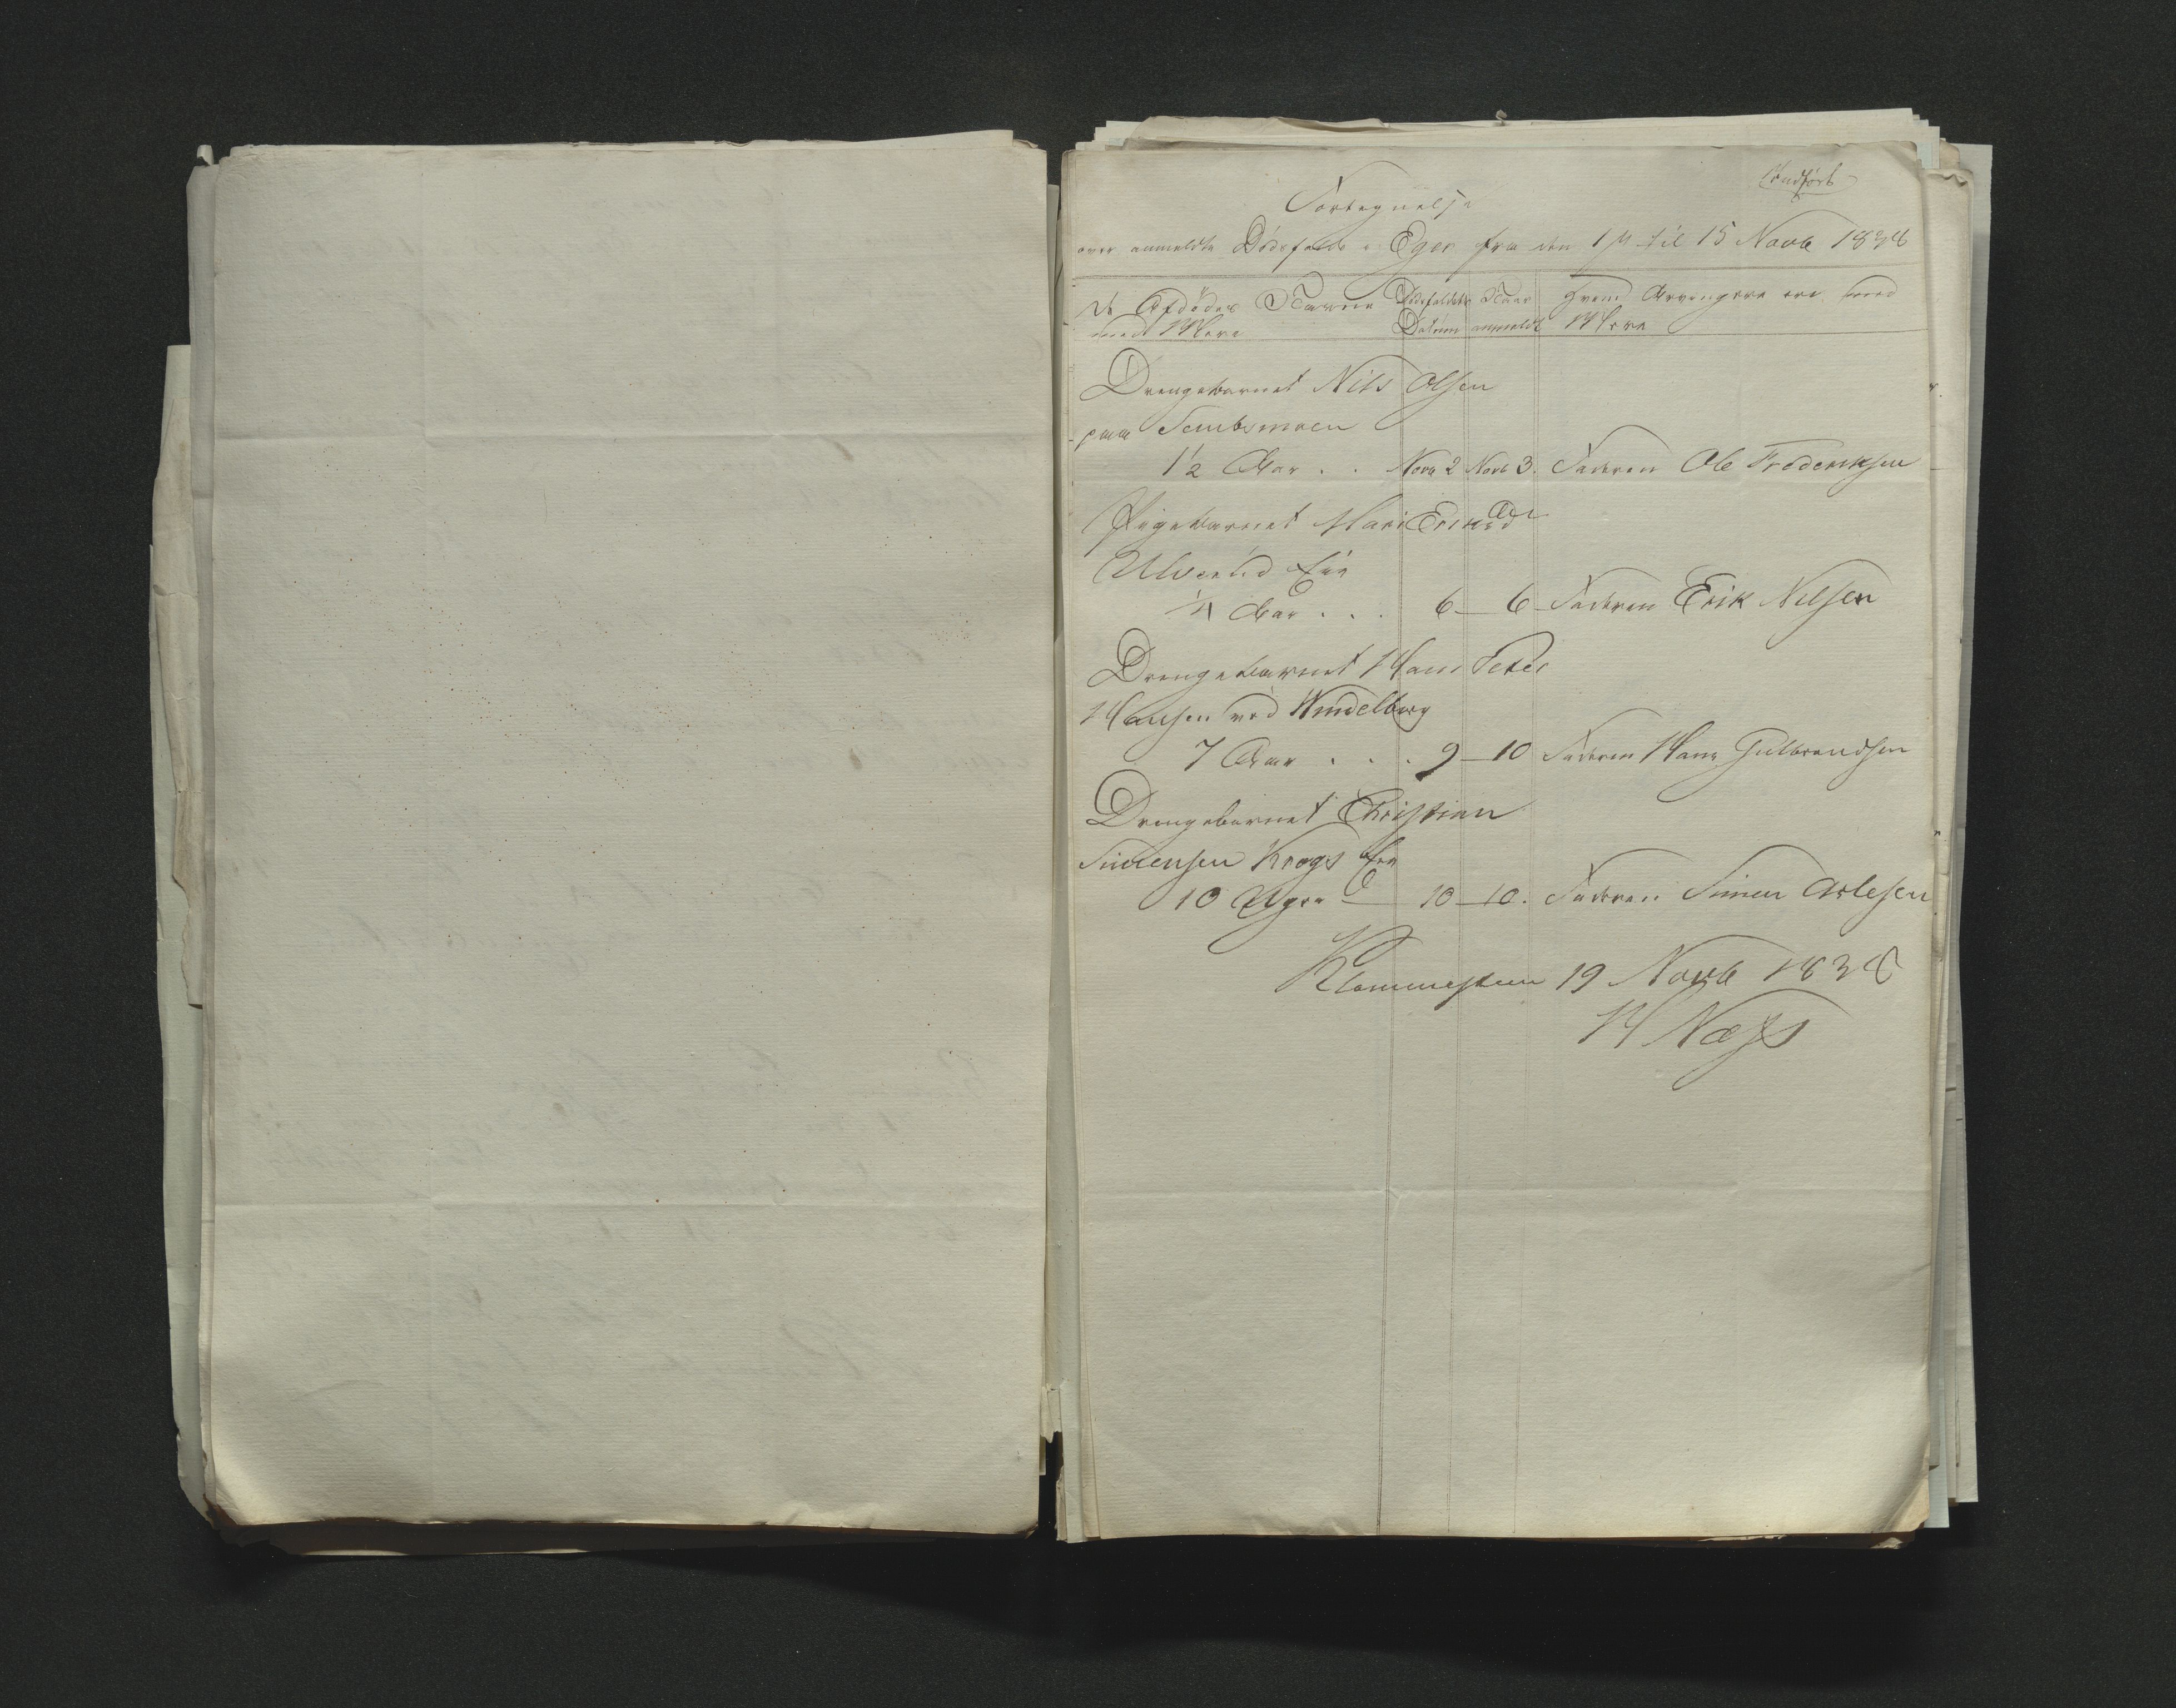 Indført
Fortegnelse
over anmeldte Dødsfald i Eger fra den 1ste til 15 Novb 1838
De Afdødes Navne Dødsfaldets Naar Hvem Arvingere ere med
med Mere Datum anmeldt Mere
Drengebarnet Nils Olsen
paa Sembsmoen
1½ Aar . . Novb 2 Novb 3. Faderen Ole Frederiksen
Pigebarnet Mari Eriksd
Ulverud Eie
¼ Aar . . . 6 — 6 Faderen Erik Nilsen
Drengebarnet Hans Peter
Hansen ved Windelborg
7 Aar . . . 9 — 10 Faderen Hans Gulbrandsen
Drengebarnet Christian
Simensen Krogs Eie
10 Uger — 10 — 10. Faderen Simen Aslesen
Klommesteen 19 Novb 1838
H Næss